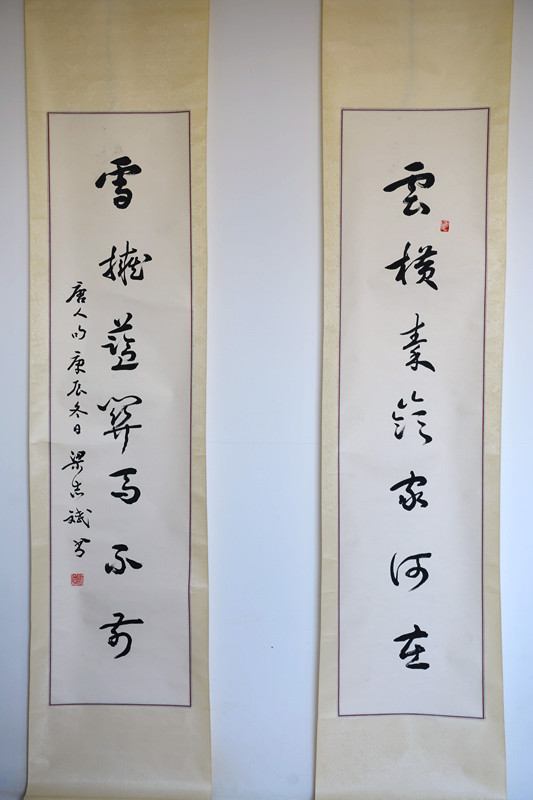 雲橫秦嶺家何在
雪擁藍關馬不前
唐人句 庚辰冬日 梁志斌書